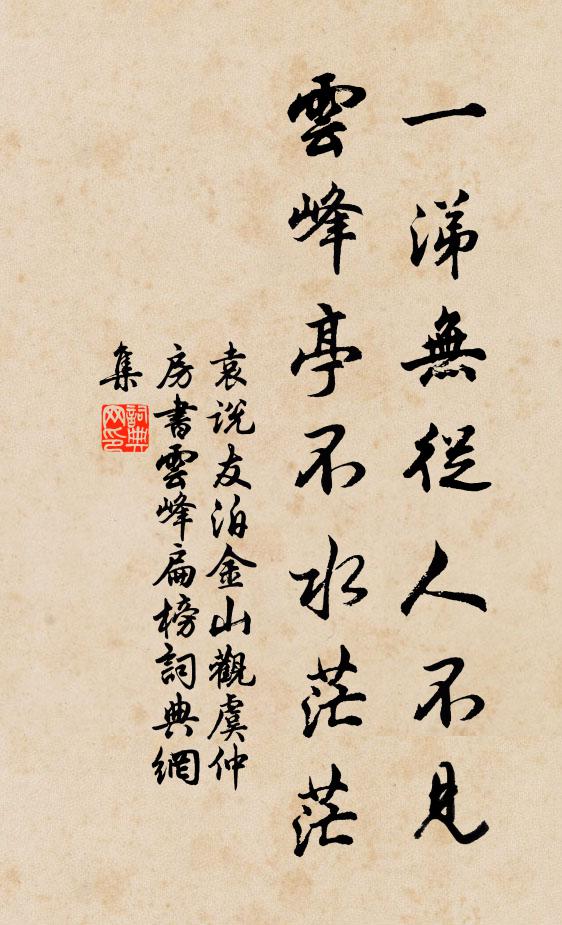 一涕無從人不見
雲峰亭下水茫茫
袁説友泊金山觀虞仲
房書雲峰扁榜詞典網
集
詞典
网印